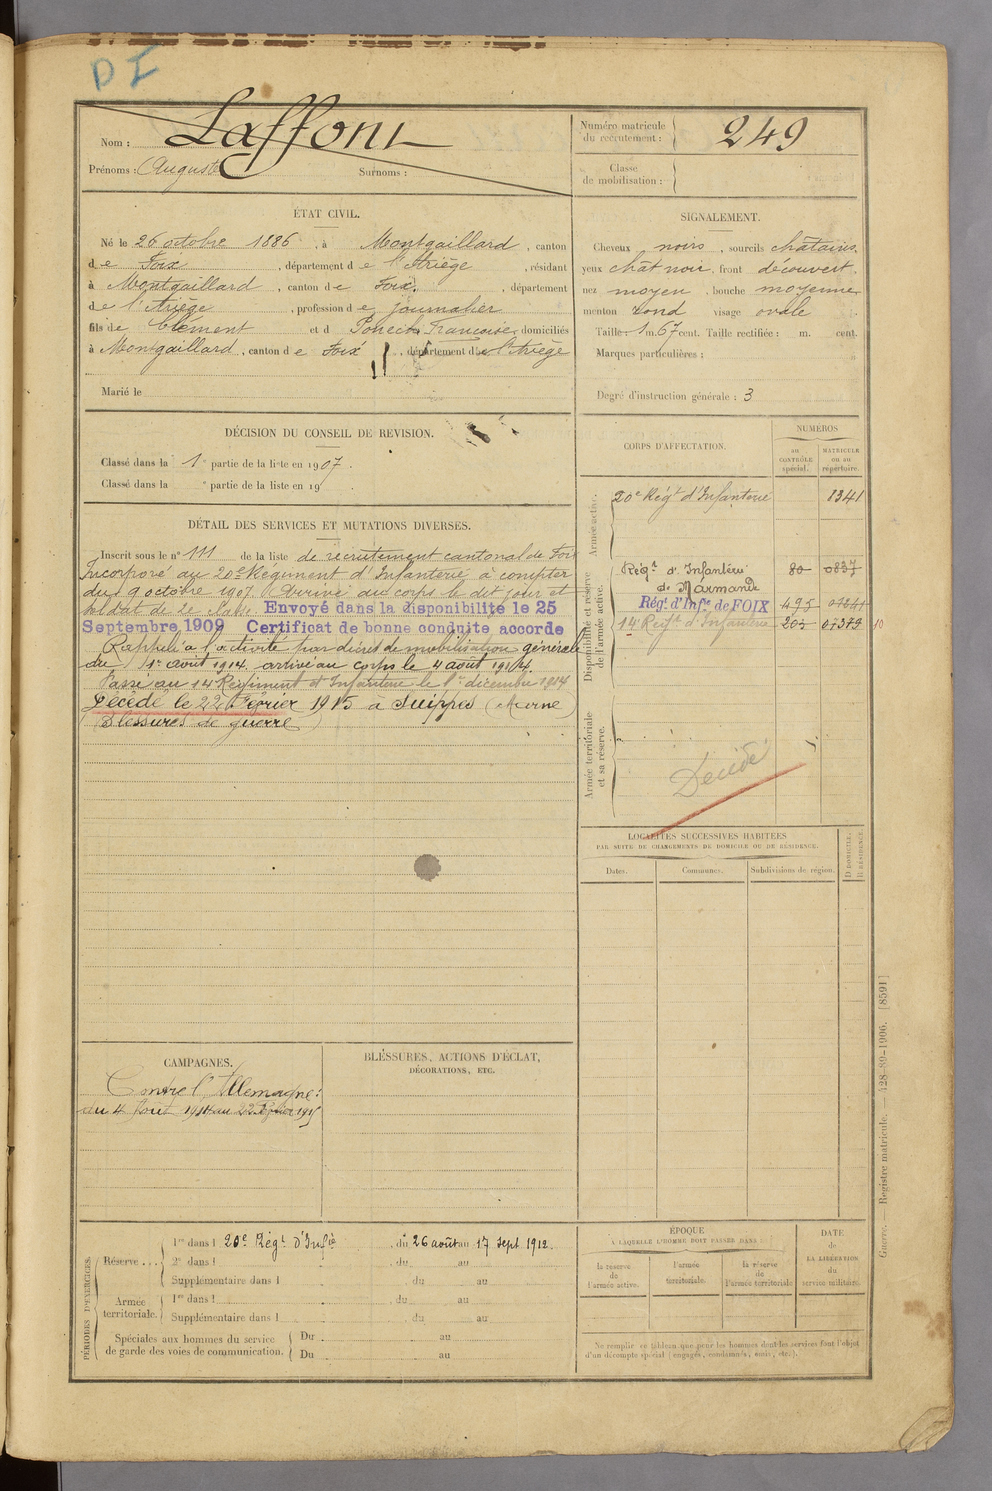 D I
Nom : Laffont
Prénoms : Auguste Surnoms :
Numéro matricule du recrutement : 249
Classe de mobilisation :
ÉTAT CIVIL.
Né le 26 octobre 1886, à Montgaillard, canton
de Foix, département de l'Ariège, résidant
à Montgaillard, canton de Foix, département
de l'Ariège, profession de journalier
fils de Clément et de Ponech Françoise domiciliés
à Montgaillard, canton de Foix, département de l'Ariège
Marié le
SIGNALEMENT.
Cheveux noirs, sourcils châtains,
yeux chât noir, front découvert,
nez moyen, bouche moyenne
menton rond visage ovale
Taille 1 m. 67 cent. Taille rectifiée : m. cent.
Marques particulières :
Degré d'instruction générale : 3
DÉCISION DU CONSEIL DE REVISION.
Classé dans la 1e partie de la liste en 1907.
Classé dans la e partie de la liste en 19 .
DÉTAIL DES SERVICES ET MUTATIONS DIVERSES.
Inscrit sous le n° 111 de la liste de recrutement cantonal de Foix
Incorporé au 20e Régiment d'Infanterie à compter
du 9 octobre 1907. Arrivé au corps le dit jour et
soldat de 2e classe. Envoyé dans la disponibilité le 25
Septembre 1909 Certificat de bonne conduite accordé
Rappelé à l'activité par décret de mobilisation générale
du 1er août 1914, arrivé au corps le 4 août 1914.
Passé au 14e Régiment d'Infanterie le 1er décembre 1914
Décédé le 22 Février 1915 à Suippes (Marne)
(Blessures de guerre)
CORPS D'AFFECTATION.
NUMÉROS
au CONTRÔLE spécial.
MATRICULE ou au répertoire.
Armée active.
20e Régt d'Infanterie 1341
Disponibilité et réserve de l'armée active.
Régt d'Infanterie 80 0837
de Marmande
Régt d'Infie de FOIX 495 01241
14e Régt d'Infanterie 203 07379 10
Armée territoriale et sa réserve.
Décédé
LOCALITÉS SUCCESSIVES HABITÉES
PAR SUITE DE CHANGEMENTS DE DOMICILE OU DE RÉSIDENCE.
Dates. Communes. Subdivisions de région. D DOMICILE. R RÉSIDENCE.
CAMPAGNES.
Contre l'Allemagne :
du 4 Août 1914 au 22 Février 1915
BLESSURES, ACTIONS D'ÉCLAT,
DÉCORATIONS, ETC.
PÉRIODES D'EXERCICES.
Réserve ...
1re dans l 20e Régt d'Infie du 26 août au 17 Sept 1912.
2e dans l du au
Supplémentaire dans l du au
Armée territoriale.
1re dans l du au
Supplémentaire dans l du au
Spéciales aux hommes du service
de garde des voies de communication.
Du au
Du au
ÉPOQUE
À LAQUELLE L'HOMME DOIT PASSER DANS :
la réserve de l'armée active.
l'armée territoriale.
la réserve de l'armée territoriale
DATE de LA LIBÉRATION du service militaire.
Ne remplir ce tableau que pour les hommes dont les services font l'objet
d'un décompte spécial (engagés, condamnés, omis, etc.).
Guerre. — Registre matricule. — 428-89-1906. [8591]